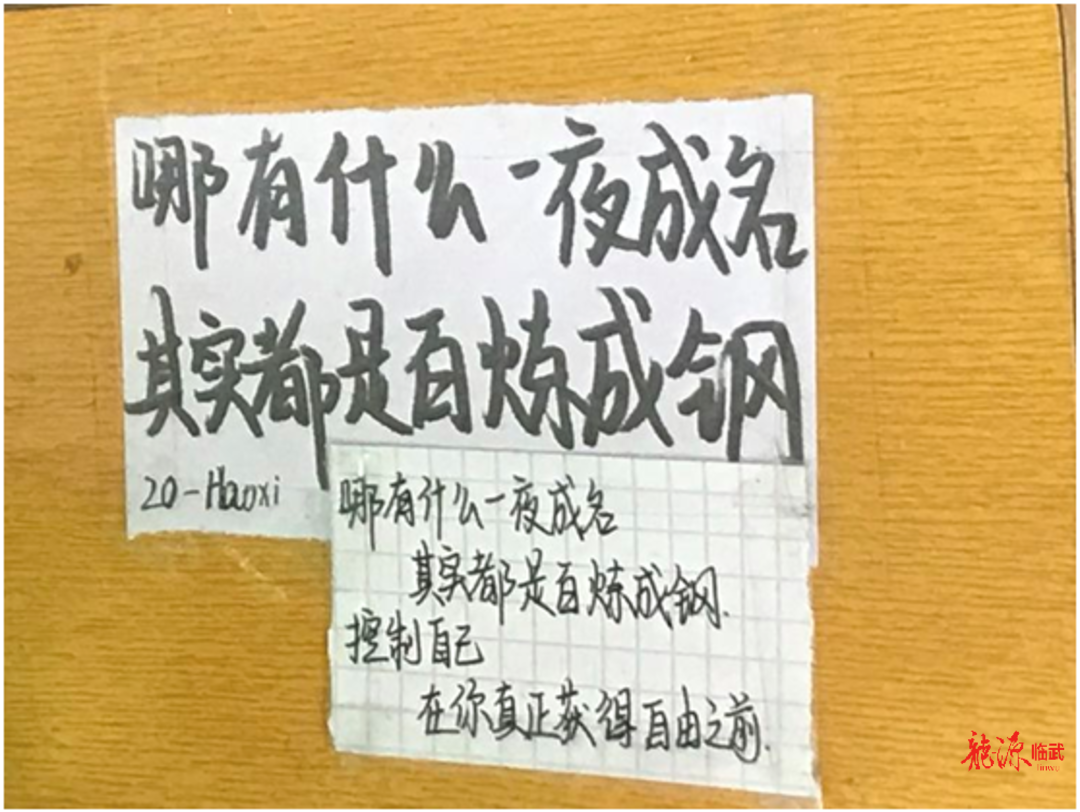 哪有什么一夜成名
其实都是百炼成钢
20-Haoxi
哪有什么一夜成名
其实都是百炼成钢.
控制自己
在你真正获得自由之前.
龍源临武
linwu